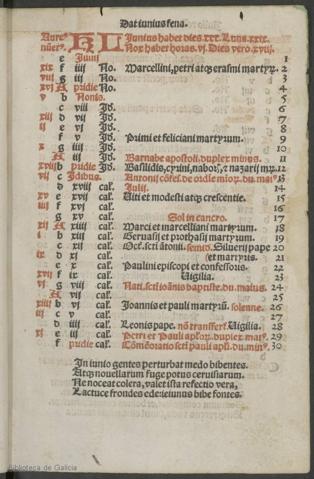 Dat iunius fena.
Aure⁹ KL Junius habet dies. xxx. Luna. xxix.
nũer⁹. Nox habet horas. vj. Dies vero. xviij.
e Junij 1
xix f iiij No. Marcellini, petri atq; erasmi martyrũ. 2
viij g iij No. 3
xvj A pridie No. 4
v b Nonis. 5
c viij Jd. 6
d vij Jd. 7
e vj Jd. 8
f v Jd. Primi et feliciani martyrum. 9
g iiij Jd. 10
A iij Jd. Barnabe apostoli. duplex minus. 11
b pridie Jd. Basilidis, cyrini, nabor⁹, z nazarij mr̃z. 12
c Idibus. Antonij cõfes. de ordine minor. du. mai⁹. 13
d xviij cal. Julij. 14
e xvij cal. Uiti et modesti atq; crescentie. 15
f xvj cal. 16
g xv cal. Sol in cancro. 17
A xiiij cal. Marci et marcelliani martyrum. 18
b xiij cal. Geruasij et prothasij martyrum. 19
c xij cal. Oct. scti ãtonij. semio. Siluerij pape 20
d xj cal. et martyris. 21
e x cal. Paulini episcopi et confessoris. 22
f ix cal. Uigilia. 23
g viij cal. Nati. scti ioãnis baptiste. du. maius. 24
A vij cal. 25
b vj cal. Joannis et pauli martyrũ. solenne. 26
c v cal. 27
d iiij cal. Leonis pape. nõ transfert. Uigilia. 28
e iij cal. Petri et Pauli aplor. duplex mai⁹. 29
f pridie cal. Cõmemoratio scti pauli apli. du. min⁹. 30
In iunio gentes perturbat medo bibentes.
Atq; nouellarum fuge potus ceruisiarum.
Ne noceat colera, valet ista refectio vera,
Lactuce frondes ede: ieiunus bibe fontes.
Biblioteca de Galicia